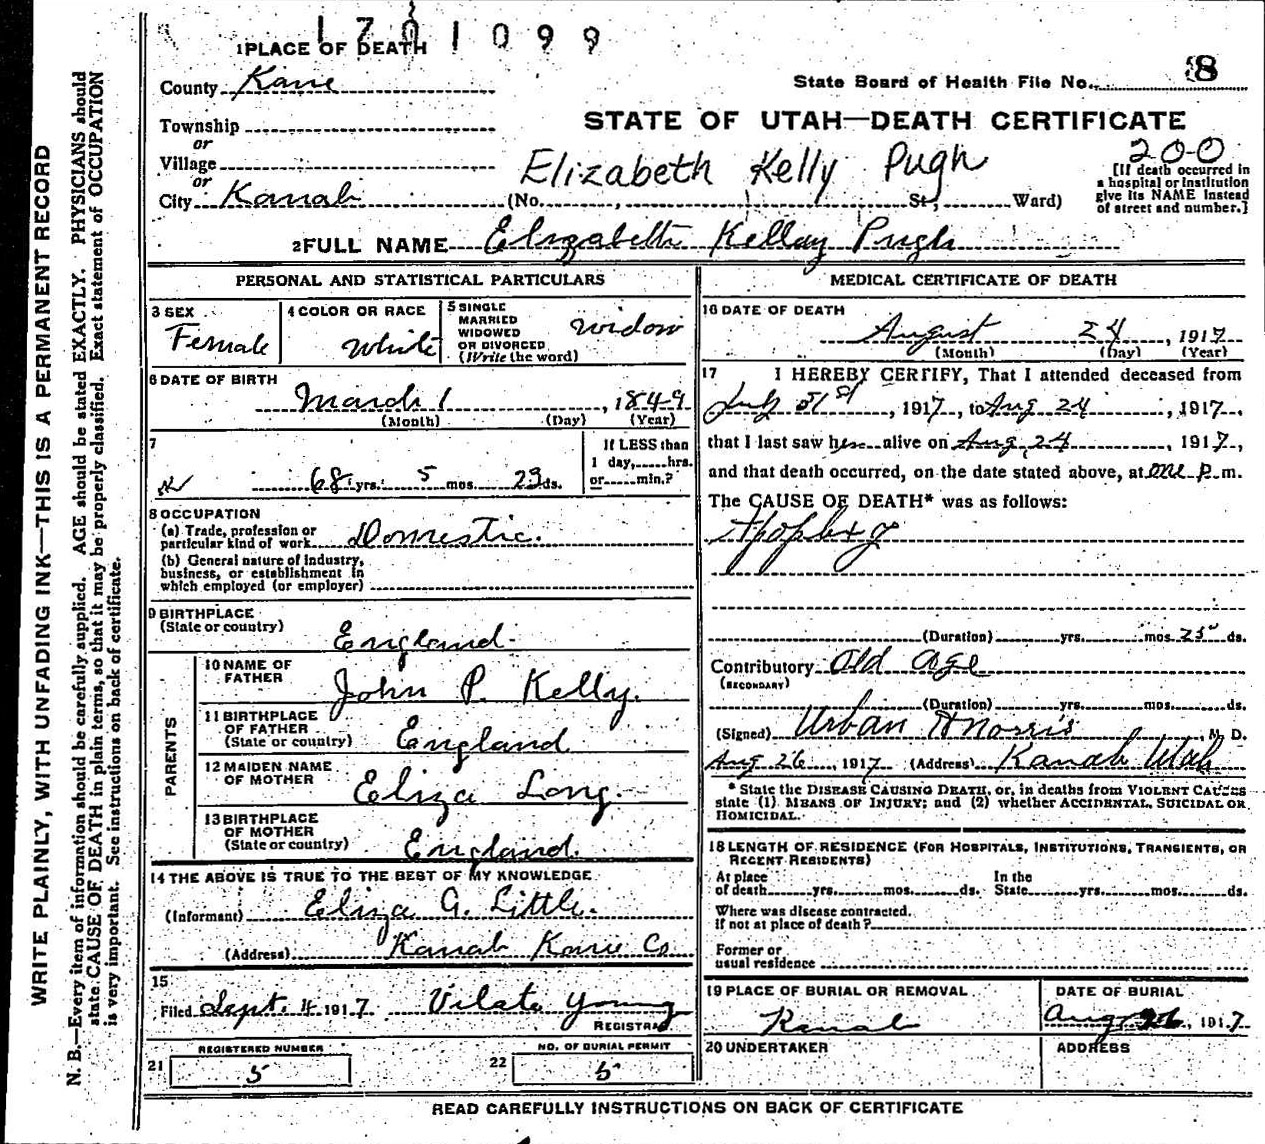 1701099
1 PLACE OF DEATH
County Kane
State Board of Health File No. 8
STATE OF UTAH—DEATH CERTIFICATE
Township
or
Village
or
City Kanab
Elizabeth Kelly Pugh
(No. , St., Ward)
200
[If death occurred in
a hospital or institution
give its NAME instead
of street and number.]
2 FULL NAME Elizabeth Kellay Pugh
PERSONAL AND STATISTICAL PARTICULARS
3 SEX
Female
4 COLOR OR RACE
White
5 SINGLE
MARRIED
WIDOWED
OR DIVORCED
(Write the word)
Widow
6 DATE OF BIRTH
March 1, 1849
(Month) (Day) (Year)
7
68 yrs. 5 mos. 23 ds.
If LESS than
1 day, hrs.
or min.?
8 OCCUPATION
(a) Trade, profession or
particular kind of work Domestic.
(b) General nature of industry,
business, or establishment in
which employed (or employer)
9 BIRTHPLACE
(State or country)
England
PARENTS
10 NAME OF
FATHER
John P. Kelly.
11 BIRTHPLACE
OF FATHER
(State or country)
England
12 MAIDEN NAME
OF MOTHER
Eliza Long.
13 BIRTHPLACE
OF MOTHER
(State or country)
England.
14 THE ABOVE IS TRUE TO THE BEST OF MY KNOWLEDGE
(Informant) Eliza G. Little.
(Address) Kanab Kane Co.
15
Filed Sept. 4 1917 Vilate Young
REGISTRAR
REGISTERED NUMBER
21 5
NO. OF BURIAL PERMIT
22 5
MEDICAL CERTIFICATE OF DEATH
16 DATE OF DEATH
August 24, 1917
(Month) (Day) (Year)
17 I HEREBY CERTIFY, That I attended deceased from
July 31st, 1917, to Aug 24, 1917.,
that I last saw her alive on Aug, 24, 1917,
and that death occurred, on the date stated above, at one P.m.
The CAUSE OF DEATH* was as follows:
Apoplexy
(Duration) yrs. mos 25 ds.
Contributory Old age
(SECONDARY)
(Duration) yrs. mos. ds.
(Signed) Urban A Norris, M. D.
Aug 26, 1917 (Address) Kanab Utah
* State the DISEASE CAUSING DEATH, or, in deaths from VIOLENT CAUSES
state (1) MEANS OF INJURY; and (2) whether ACCIDENTAL, SUICIDAL OR
HOMICIDAL.
18 LENGTH OF RESIDENCE (FOR HOSPITALS, INSTITUTIONS, TRANSIENTS, OR
RECENT RESIDENTS)
At place
of death yrs. mos. ds.
In the
State yrs. mos. ds.
Where was disease contracted.
if not at place of death?
Former or
usual residence
19 PLACE OF BURIAL OR REMOVAL
Kanab
DATE OF BURIAL
Aug 26, 1917
20 UNDERTAKER
ADDRESS
READ CAREFULLY INSTRUCTIONS ON BACK OF CERTIFICATE
WRITE PLAINLY, WITH UNFADING INK—THIS IS A PERMANENT RECORD
N. B.—Every item of information should be carefully supplied. AGE should be stated EXACTLY. PHYSICIANS should
state CAUSE OF DEATH in plain terms, so that it may be properly classified. Exact statement of OCCUPATION
is very important. See instructions on back of certificate.